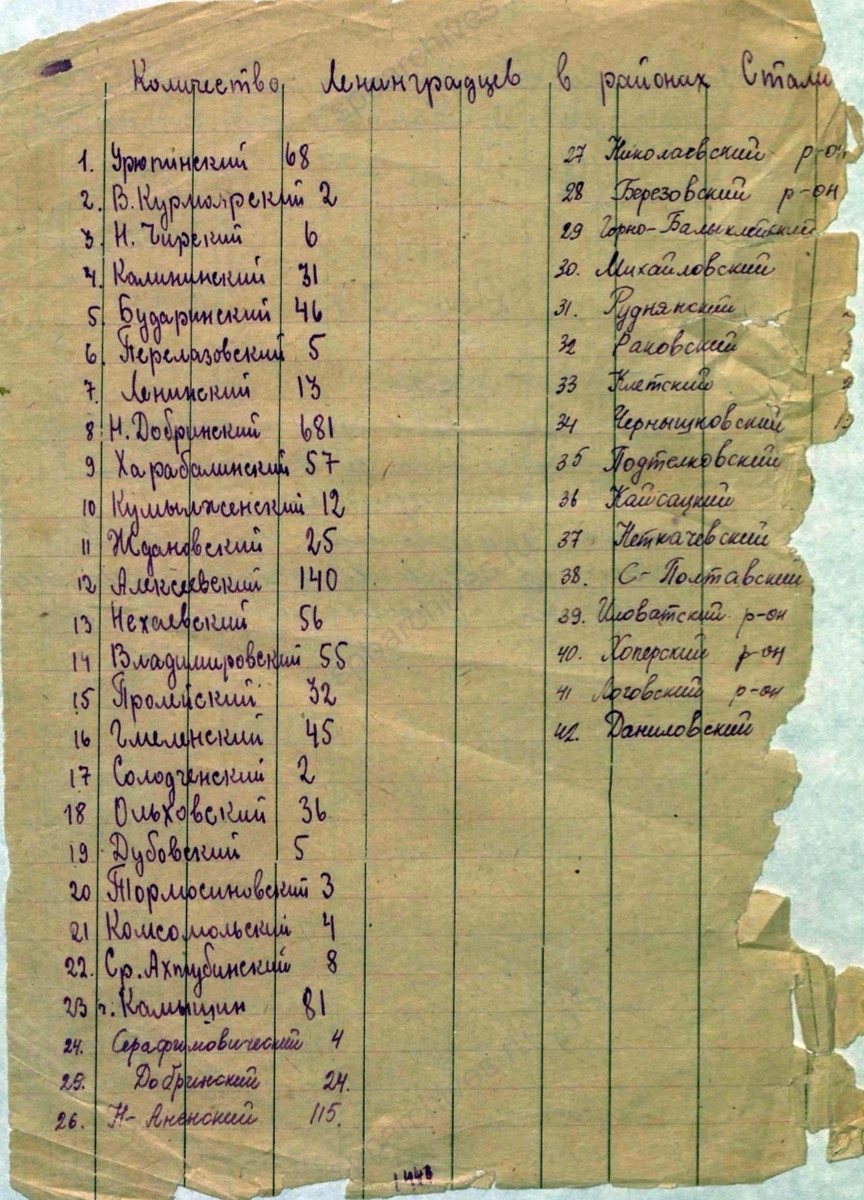 Количество Ленинградцев в районах Стали
1. Урюпинский 68
2. В. Курмоярский 2
3. Н. Чирский 6
4. Калининский 31
5. Бударинский 46
6. Перелазовский 5
7. Ленинский 13
8. Н. Добринский 681
9 Харабалинский 57
10 Кумылженский 12
11 Ждановский 25
12 Алексеевский 140
13 Нехаевский 56
14 Владимировский 55
15 Пролейский 32
16 Гмеленский 45
17 Солодченский 2
18 Ольховский 36
19 Дубовский 5
20 Тормосиновский 3
21 Комсомольский 4
22. Ср. Ахтубинский 8
23 г. Камышин 81
24. Серафимовический 4
25. Добринский 24.
26. Н-Аненский 115.
27 Николаевский р-он
28 Березовский р-он
29 Горно-Балыклейский
30. Михайловский
31. Руднянский
32 Раковский
33 Клетский
34 Чернышковский
35 Подтелковский
36 Кайсацкий
37 Неткачевский
38. С-Полтавский
39. Иловатский р-он
40. Хоперский р-он
41 Логовский р-он
42. Даниловский